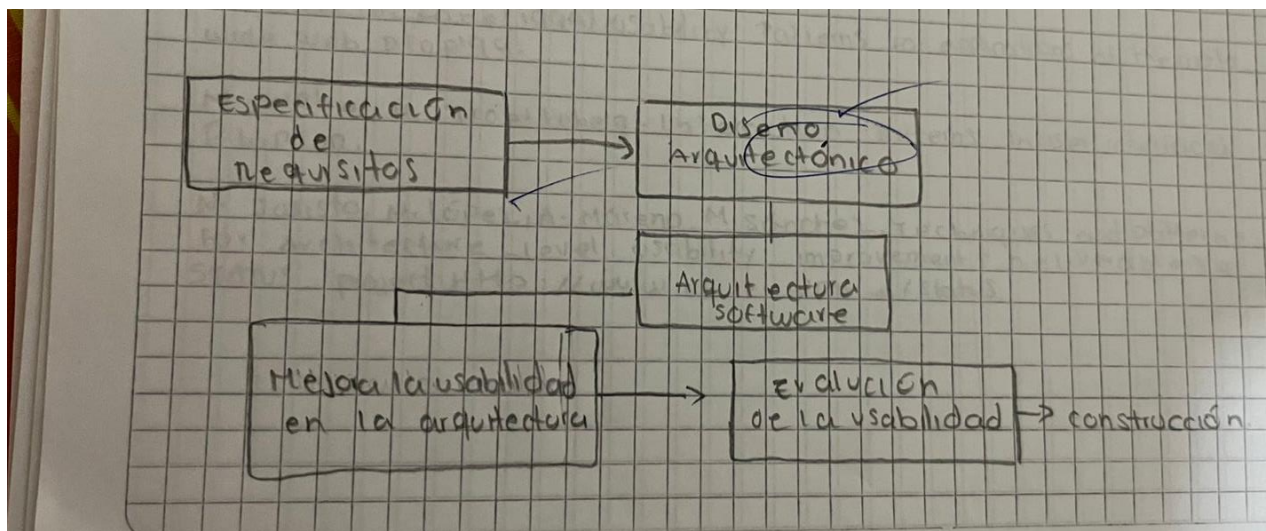 Especificación
de
requisitos
Diseño
Arquitectónico
Arquitectura
software
Mejora la usabilidad
en la arquitectura
Evalución
de la usabilidad
construcción